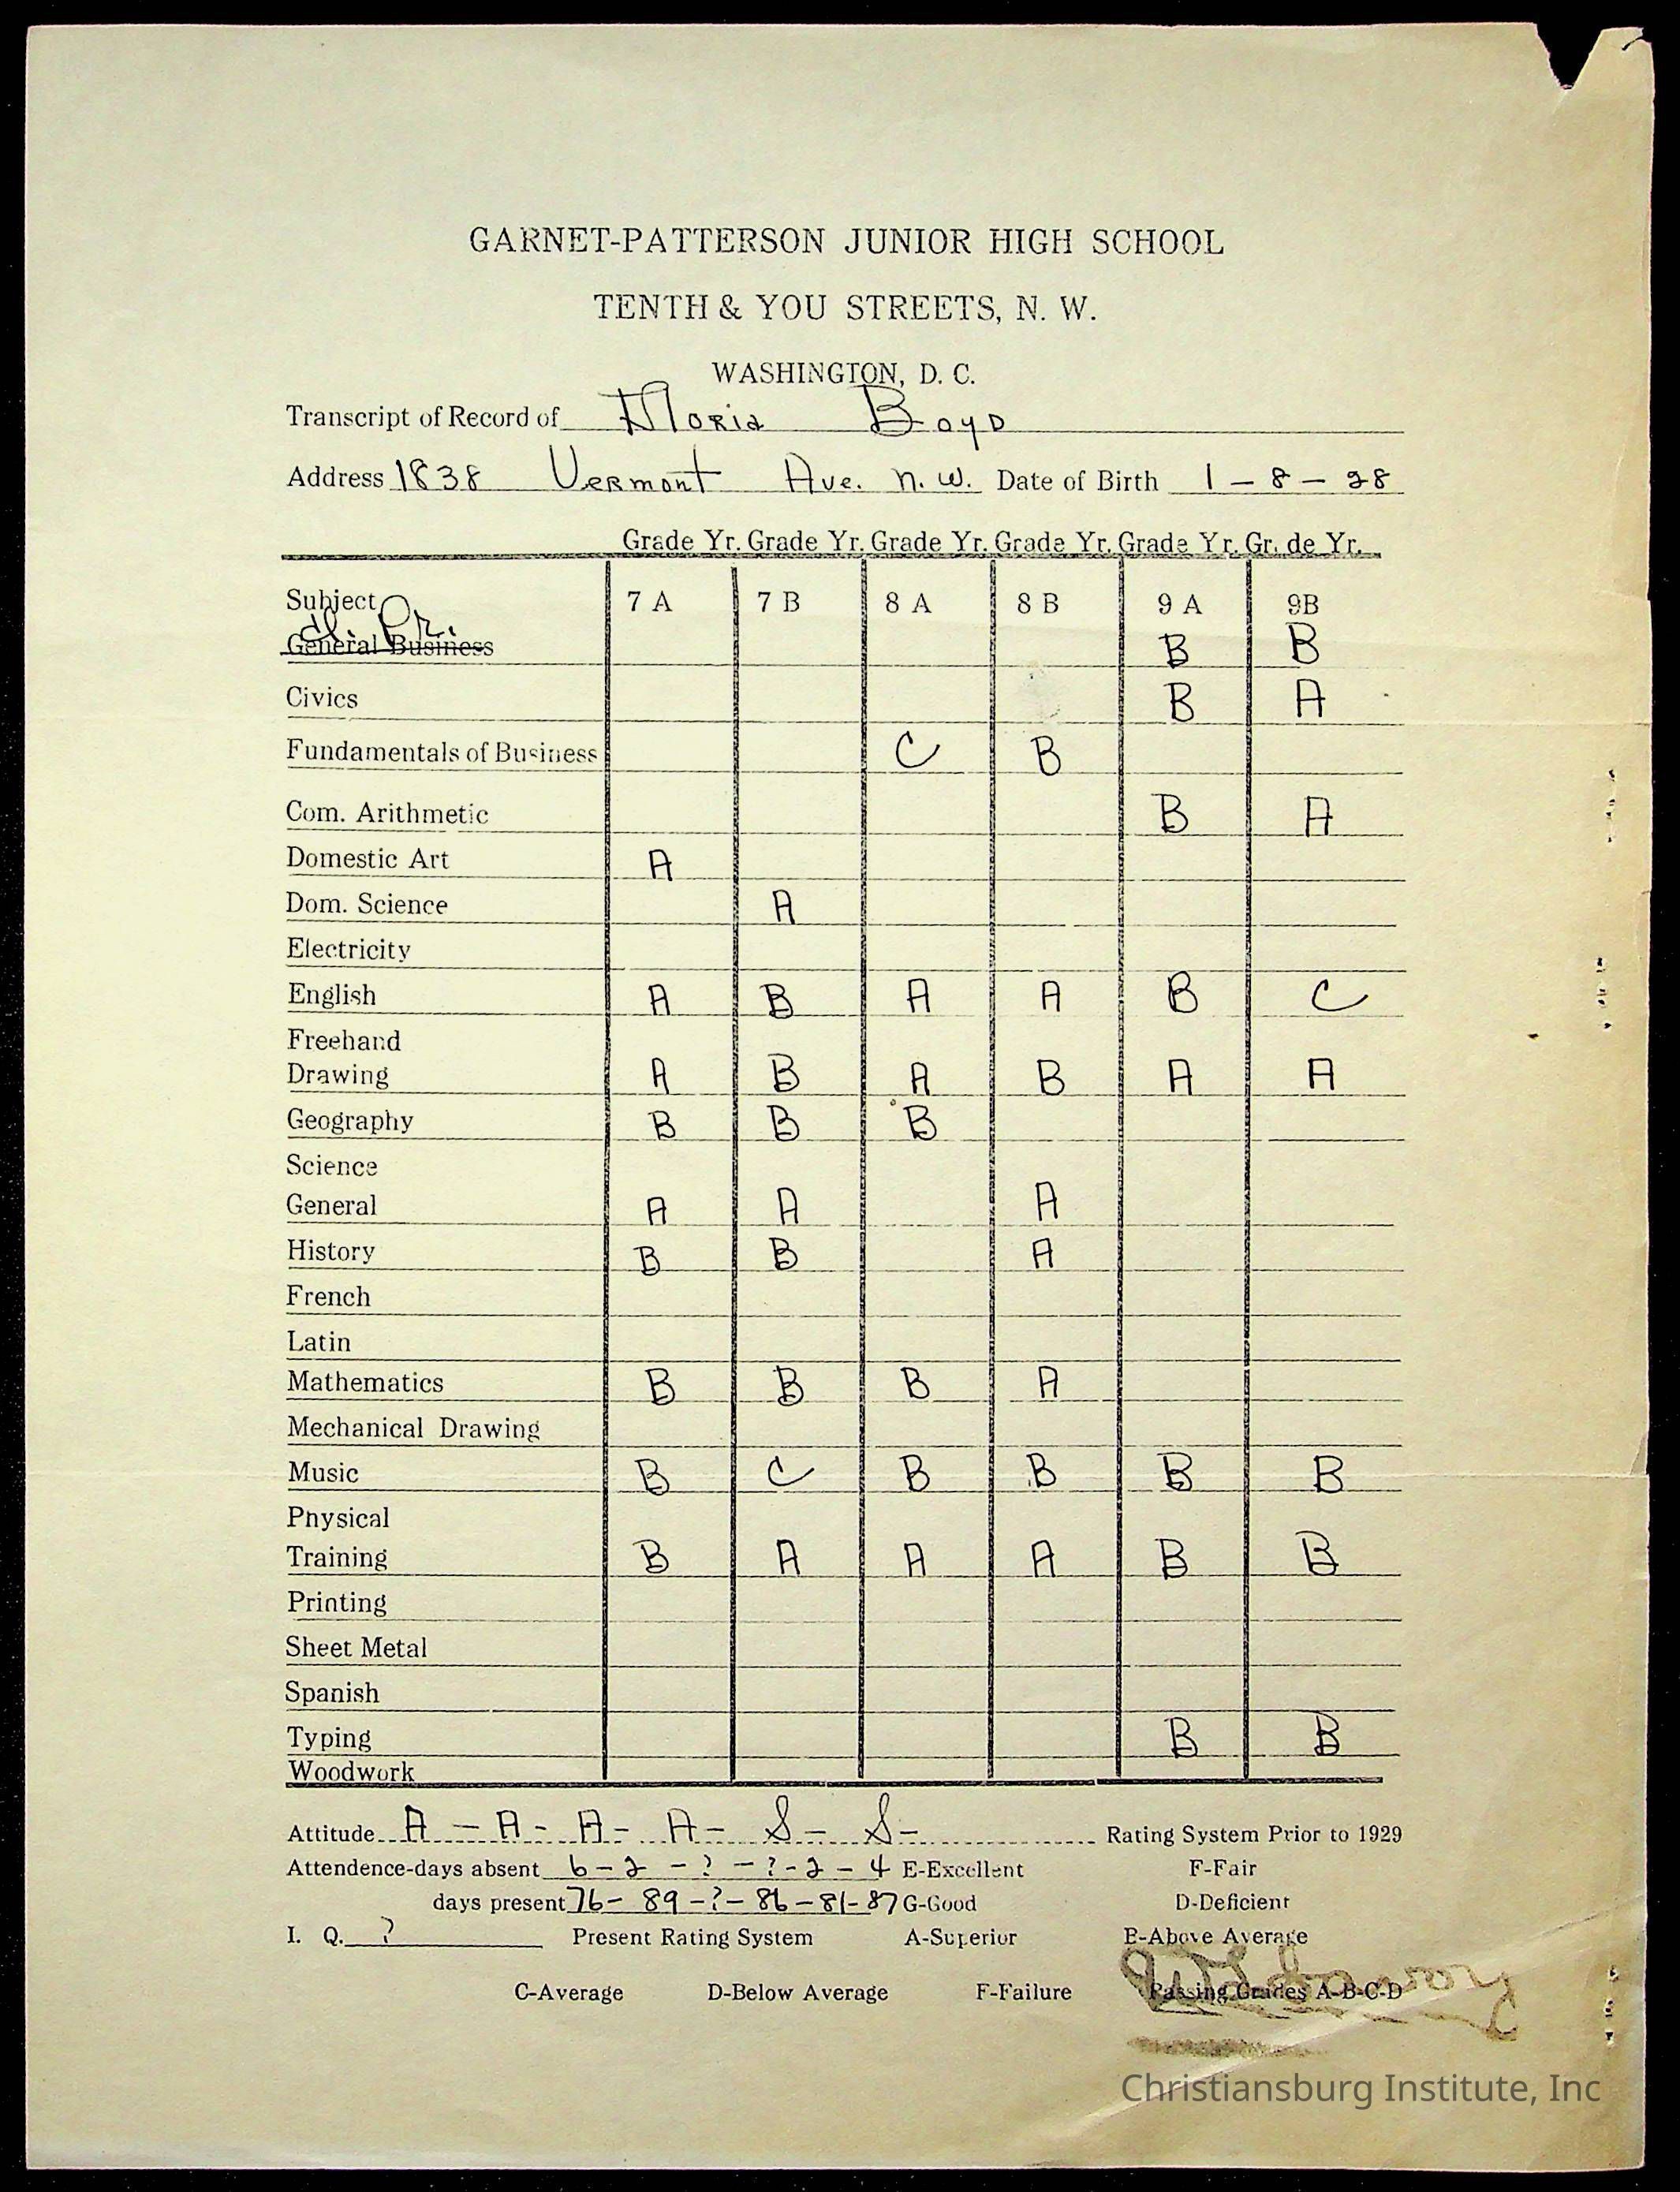 GARNET-PATTERSON JUNIOR HIGH SCHOOL
TENTH & YOU STREETS, N. W.
WASHINGTON, D. C.
Transcript of Record of Boyd
Address 1838 Vermont Ave. N. W. Date of Birth 1 - 8 - 28
Grade Yr. Grade Yr. Grade Yr. Grade Yr. Grade Yr. Gr. de Yr.
Subject 7 A 7 B 8 A 8 B 9 A 9B
General Business B B
Civics B A
Fundamentals of Business C B
Com. Arithmetic B A
Domestic Art A
Dom. Science A
Electricity
English A B A A B C
Freehand
Drawing A B A B A A
Geography B B B
Science
General A A A
History B B A
French
Latin
Mathematics B B B A
Mechanical Drawing
Music B C B B B B
Physical
Training B A A A B B
Printing
Sheet Metal
Spanish
Typing B B
Woodwork
Attitude A - A - A - A - S - S - Rating System Prior to 1929
Attendence-days absent 6 - 2 - ? - ? - 2 - 4 E-Excellent F-Fair
days present 76 - 89 - ? - 86 - 81 - 87 G-Good D-Deficient
I. Q. ? Present Rating System A-Superior B-Above Average
C-Average D-Below Average F-Failure Passing Grades A-B-C-D
Christiansburg Institute, Inc